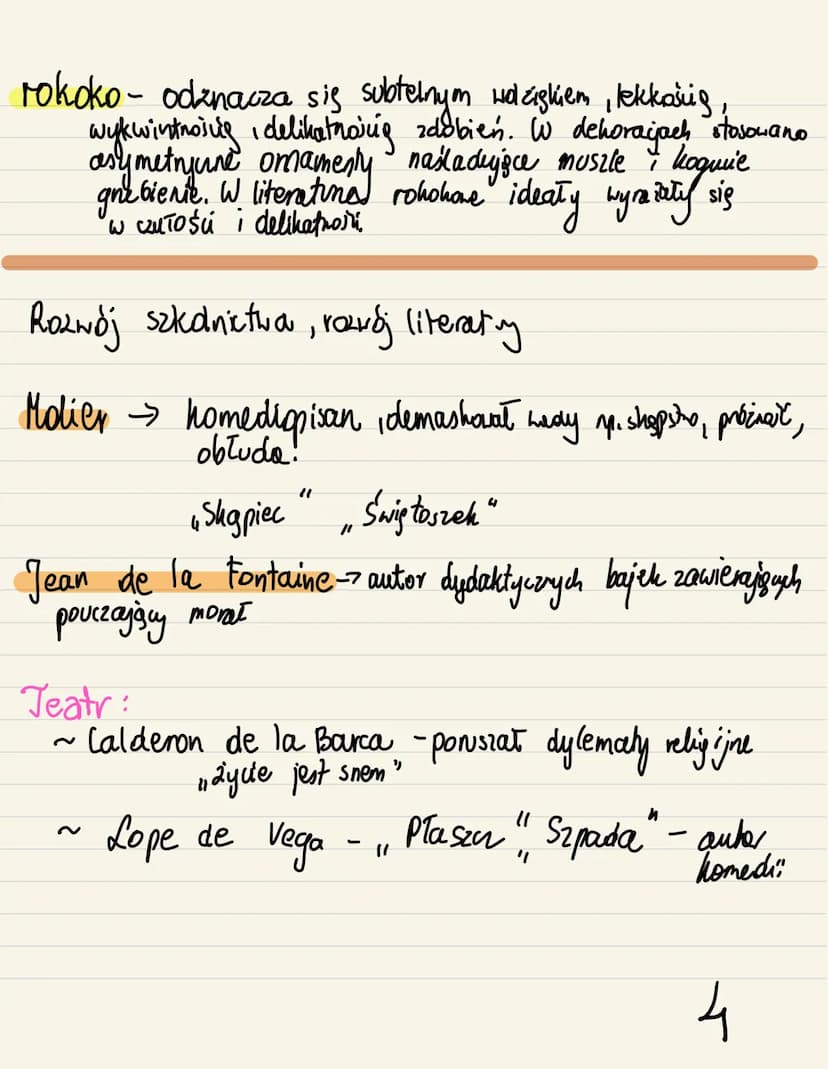 rokoko - odznacza się subtelnym wdziękiem, lekkością,
wykwintnością i delikatnością zdobień. W dekoracjach stosowano
asymetryczne ornamenty naśladujące muszle i kogucie
grzbienie. W literaturze rokokowe ideały wyrażały się
w czułości i delikatności.
Rozwój szkolnictwa, rozwój literatury
Molier → komediopisarz, demaskował wady np. skąpstwo, próżność,
obłuda!
„Skąpiec" „Świętoszek"
Jean de la Fontaine → autor dydaktycznych bajek zawierających
pouczający morał
Teatr:
~ Calderon de la Barca - poruszał dylematy religijne
„życie jest snem"
~ Lope de Vega - „Płaszcz", „Szpada" - autor
komedii
4